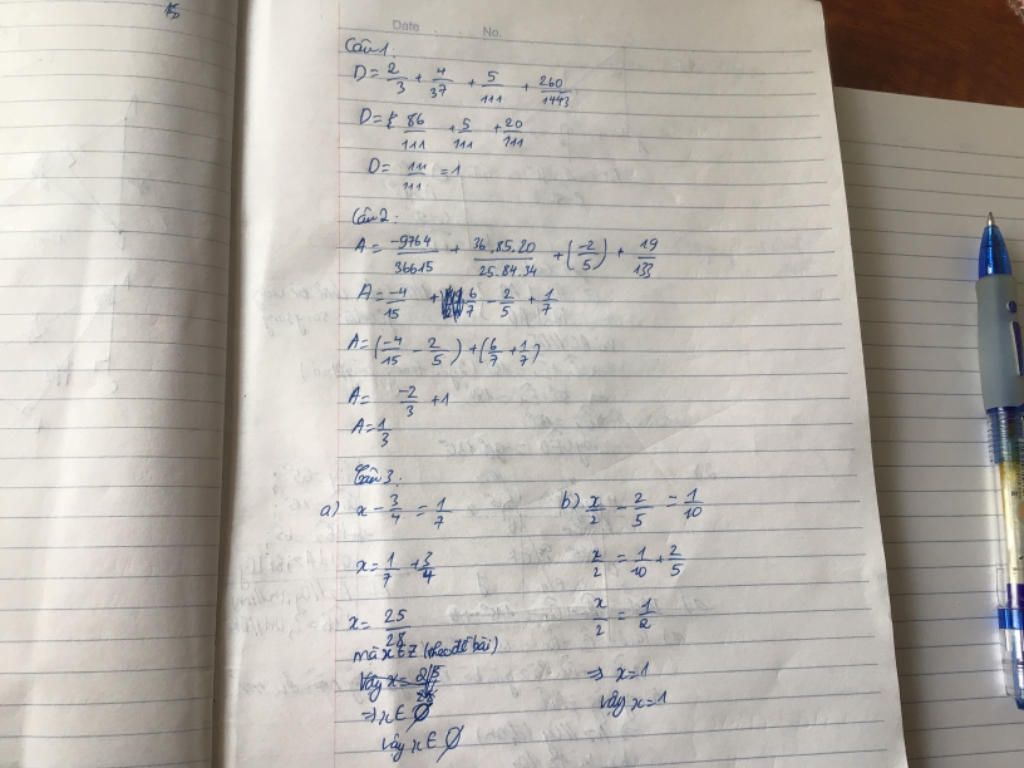 Date No.
Câu 1:
D = 2/3 + 4/37 + 5/111 + 260/1443
D = 86/111 + 5/111 + 20/111
D = 111/111 = 1
Câu 2:
A = -9764/36615 + 36.85.20/25.84.34 + (-2/5) + 19/133
A = -4/15 + 6/7 - 2/5 + 1/7
A = (-4/15 - 2/5) + (6/7 + 1/7)
A = -2/3 + 1
A = 1/3
Câu 3:
a) x - 3/4 = 1/7
x = 1/7 + 3/4
x = 25/28
mà x ∈ Z (theo đề bài)
Vậy x = 25/28
=> x ∈ ∅
Vậy x ∈ ∅
b) x/2 - 2/5 = 1/10
x/2 = 1/10 + 2/5
x/2 = 1/2
=> x = 1
Vậy x = 1